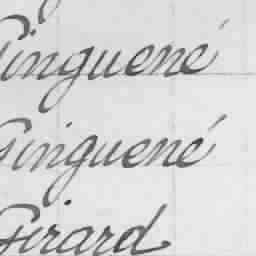 Ginguené
Ginguené
Girard